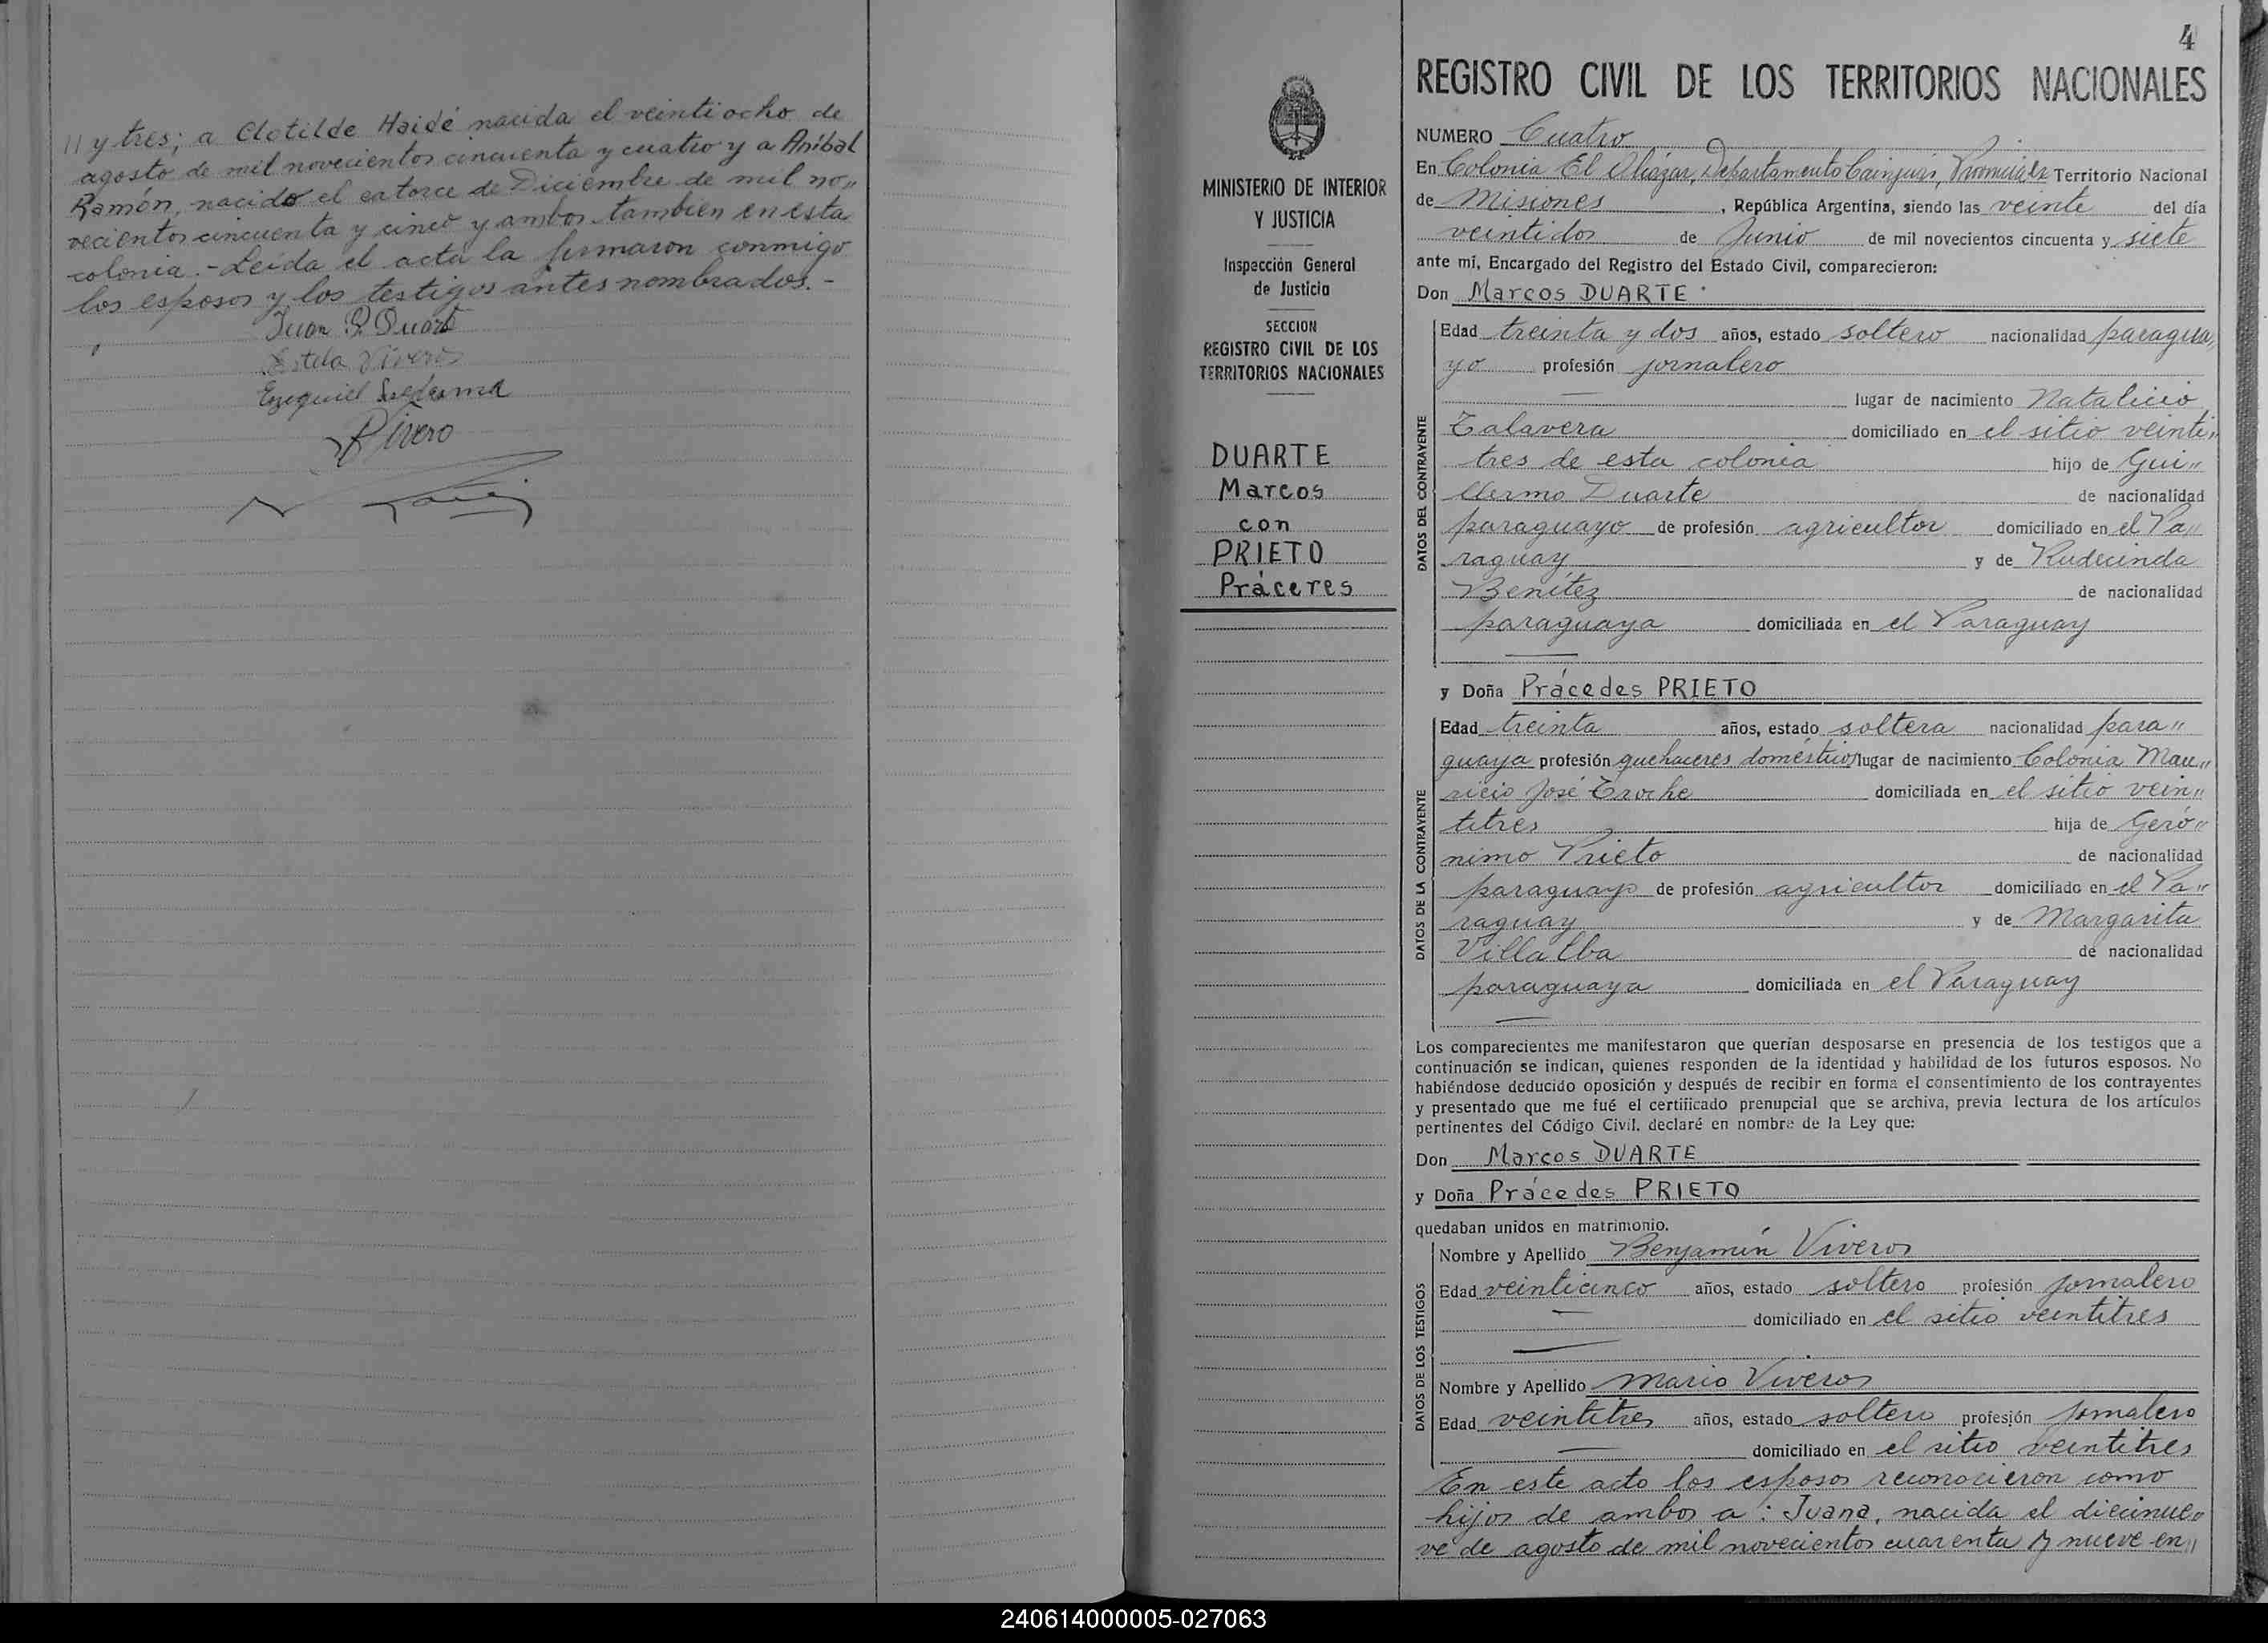 " y tres; a Clotilde Haidé nacida el veintiocho de
agosto de mil novecientos cincuenta y cuatro y a Aníbal
Ramón, nacido el catorce de Diciembre de mil no"
vecientos cincuenta y cinco y ambos tambien en esta
colonia.- Leída el acta la firmaron conmigo
los esposos y los testigos antes nombrados.-
Juan P. Duarte
Estela Viveros
Ezequiel Ledesma
Vivero
4
MINISTERIO DE INTERIOR
Y JUSTICIA
Inspección General
de Justicia
SECCION
REGISTRO CIVIL DE LOS
TERRITORIOS NACIONALES
DUARTE
Marcos
con
PRIETO
Práceres
REGISTRO CIVIL DE LOS TERRITORIOS NACIONALES
NUMERO Cuatro
En Colonia El Alcázar, Departamento Cainguás, Provincia de Territorio Nacional
de Misiones, República Argentina, siendo las veinte del día
veintidos de Junio de mil novecientos cincuenta y siete
ante mí, Encargado del Registro del Estado Civil, comparecieron:
Don Marcos DUARTE
DATOS DEL CONTRAYENTE
Edad treinta y dos años, estado soltero nacionalidad paragua"
yo profesión jornalero
lugar de nacimiento Natalicio
Talavera domiciliado en el sitio veinti"
tres de esta colonia hijo de Gui"
llermo Duarte de nacionalidad
paraguayo de profesión agricultor domiciliado en el Pa"
raguay y de Rudecinda
Benítez de nacionalidad
paraguaya domiciliada en el Paraguay
y Doña Prácedes PRIETO
DATOS DE LA CONTRAYENTE
Edad treinta años, estado soltera nacionalidad para"
guaya profesión quehaceres domésticos lugar de nacimiento Colonia Mau"
ricio José Troche domiciliada en el sitio vein"
titres hija de Geró"
nimo Prieto de nacionalidad
paraguayo de profesión agricultor domiciliado en el Pa"
raguay y de Margarita
Villalba de nacionalidad
paraguaya domiciliada en el Paraguay
Los comparecientes me manifestaron que querían desposarse en presencia de los testigos que a
continuación se indican, quienes responden de la identidad y habilidad de los futuros esposos. No
habiéndose deducido oposición y después de recibir en forma el consentimiento de los contrayentes
y presentado que me fué el certificado prenupcial que se archiva, previa lectura de los artículos
pertinentes del Código Civil, declaré en nombre de la Ley que:
Don Marcos DUARTE
y Doña Prácedes PRIETO
quedaban unidos en matrimonio.
DATOS DE LOS TESTIGOS
Nombre y Apellido Benjamín Viveros
Edad veinticinco años, estado soltero profesión jornalero
domiciliado en el sitio veintitres
Nombre y Apellido Mario Viveros
Edad veintitres años, estado soltero profesión jornalero
domiciliado en el sitio veintitres
En este acto los esposos reconocieron como
hijos de ambos a: Juana, nacida el diecinue"
ve de agosto de mil novecientos cuarenta y nueve en"
240614000005-027063